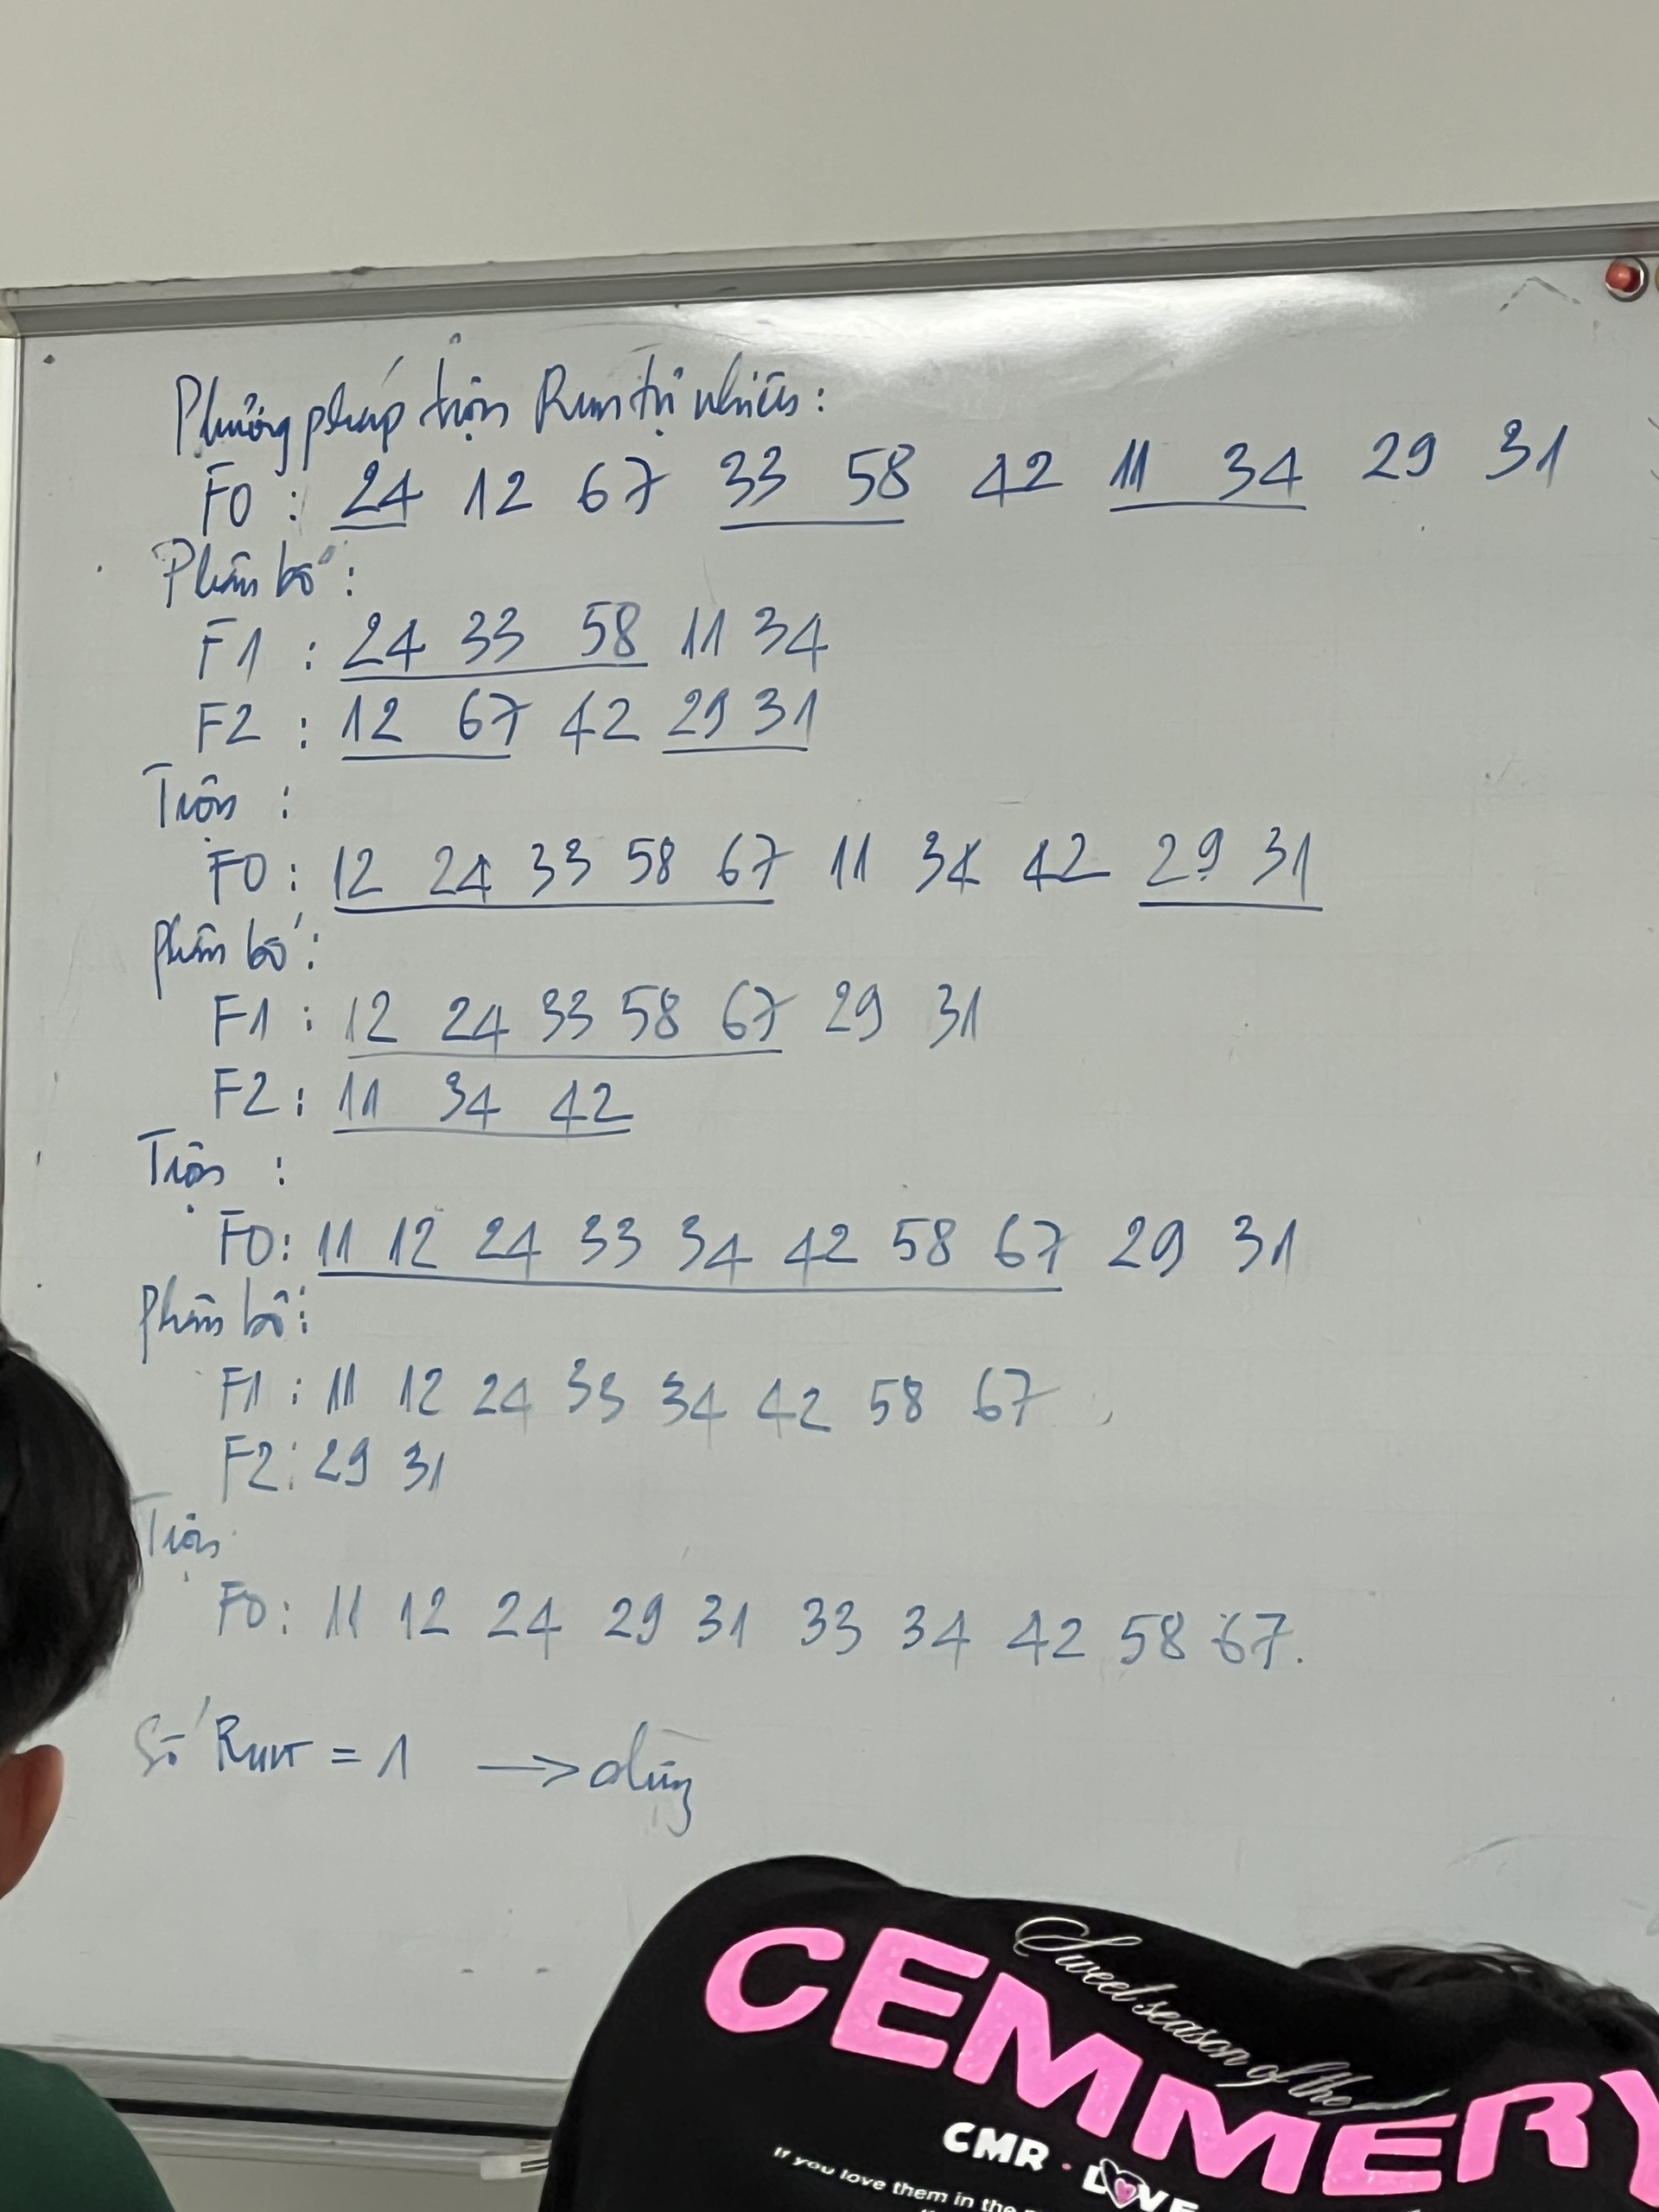 Phương pháp trộn Run tự nhiên:
F0 : 24 12 67 33 58 42 11 34 29 31
Phân bố :
F1 : 24 33 58 11 34
F2 : 12 67 42 29 31
Trộn :
F0 : 12 24 33 58 67 11 34 42 29 31
phân bố :
F1 : 12 24 33 58 67 29 31
F2 : 11 34 42
Trộn :
F0 : 11 12 24 33 34 42 58 67 29 31
Phân bố :
F1 : 11 12 24 33 34 42 58 67
F2 : 29 31
Trộn
F0 : 11 12 24 29 31 33 34 42 58 67.
Số Run = 1 → dừng
Sweet season of the
CEMMERY
CMR · LOVE
If you love them in the